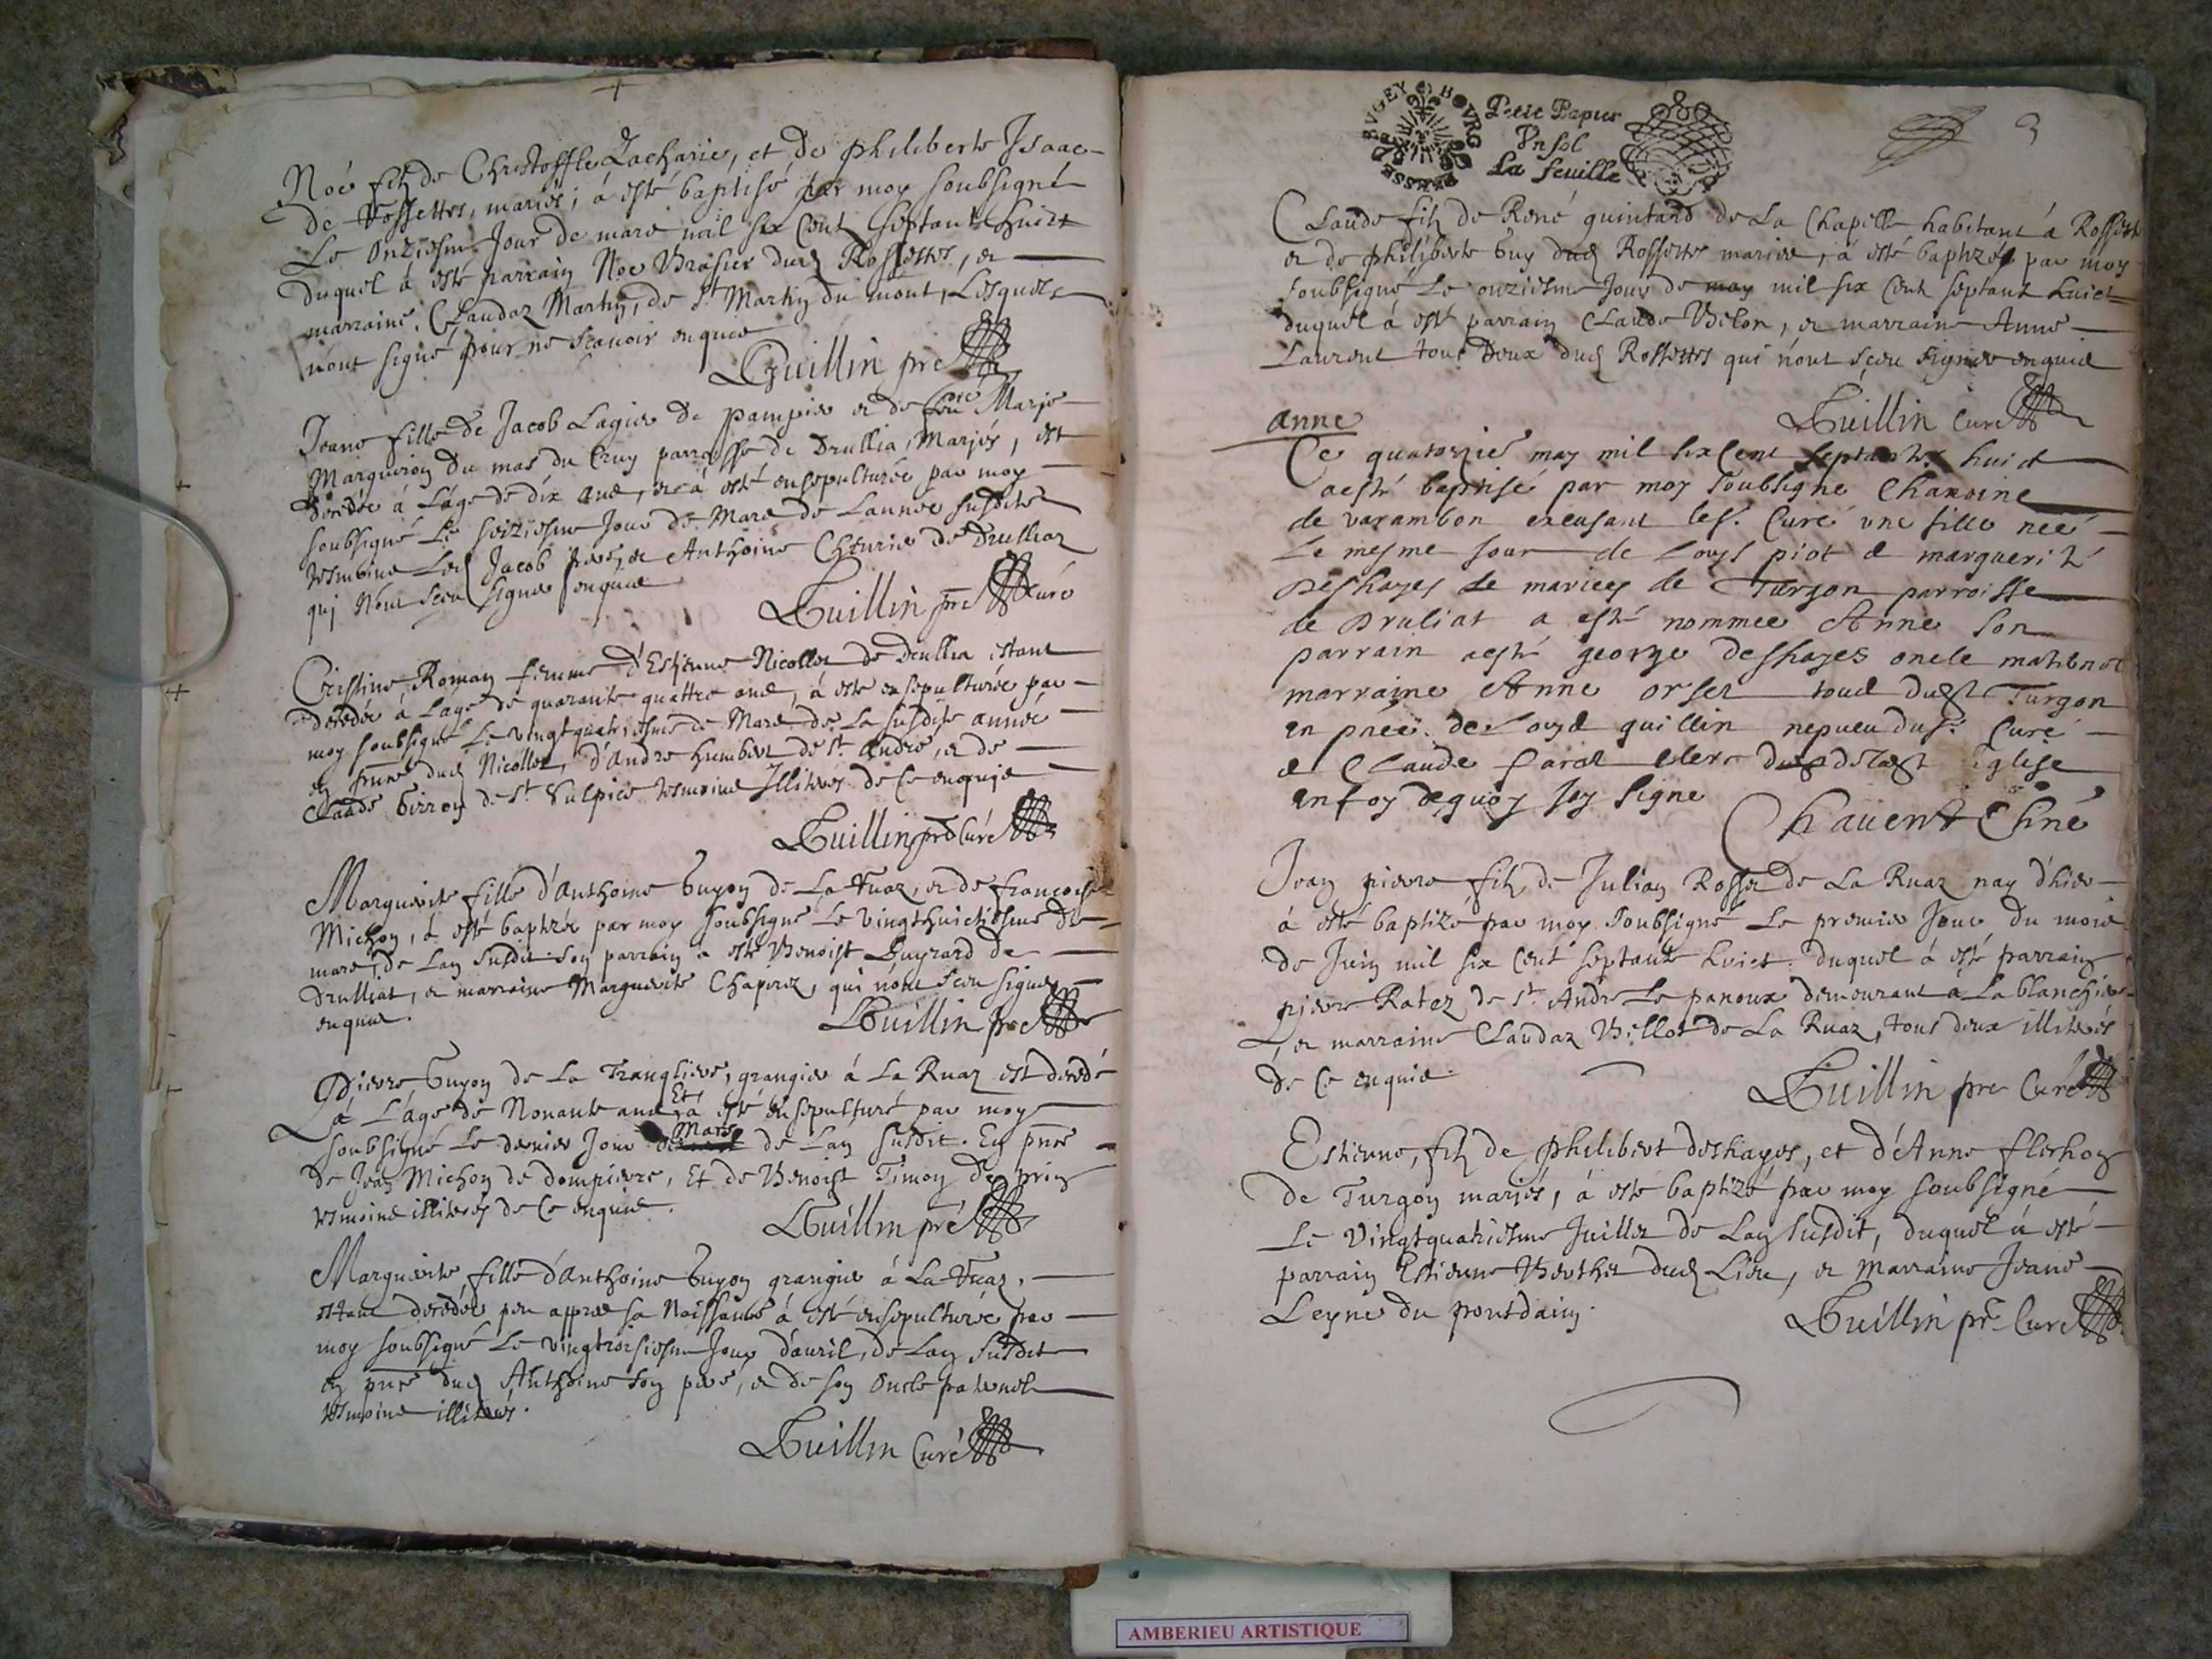 Noé filz de Christoffle Zacharie, et de philiberte Isaac
de Rossettes, mariés; à esté baptisé par moy soubsigné
Le onziesme Jour de mars mil six Cent septante huict
duquel à esté parrain Noe Brasier dud Rossettes, et
marraine, Claudaz Martin, de St Martin du mont, Lesquels
nont signé pour ne scavoir enquis
Guillin pre
Jeane fille de Jacob Lagier de pampier et de Marje
Margueron du mas du Cruy parroisse de Drullia, Marjés, est
décédée à L'age de dix ans, et à esté ensepulturée par moy
soubsigné Le seiziesme Jour de Mars de Lannée susdite
tesmoins Led Jacob pere, et Anthoine Chevrier de Drulliaz
quj Nont sceu signer enquis
Guillin pre Curé
Cristine Roman femme d'Estienne Nicollet de Drullia estant
décédée à L'age de quarante quattre ans, à esté ensepulturée par
moy soubsigné Le vingtquatriesme de Mars de La susdite année
en pnce dud Nicollet, d'Andre humbert de St André, et de
Claude Girron de St Sulpice tesmoins Illiteres de Ce enquis
Guillin pre Curé
Marguerite fille d'Anthoine Guyon de La Ruaz, et de francoise
Michon, à esté baptizée par moy soubsigné Le vingthuictiesme de
mars, de Lan susdit son parrain a esté Benoist Guyrard de
Drulliat, et marraine Marguerite Chapuiz, qui nónt sceu signer
enquis.
Guillin pre
Pierre Guyon de La Trangliere, grangier à La Ruaz est decedé
à L'age de Nonante ans, Et à esté ensepulturé par moy
soubsigné Le dernier Jour Mars de Lan susdit. En pnce
de Jean Michon de dompierre, Et de Benoist Timon de prin
tesmoins illiterés de Ce enquis.
Guillin pré
Marguerite fille d'Anthoine Guyon grangier à La Ruaz,
estant decedée peu appres sa Naissance à esté ensepulturée par
moy soubsigné Le vingtroisiesme Jour d'auril, de Lan susdit
en pnce dud Anthoine son pere, et de son oncle paternel
tesmoins illiterés.
Guillin Curé
BVGEY BOVRG BRESSE
Petit Papier
Vn sol
La feuille
3
Claude filz de René quintard de La Chapelle habitant à Rossettes
et de philiberte Guy dud Rossettes mariés, à esté baptizé par moy
soubsigné Le onziesme Jour de may mil six Cent septant huict
duquel à esté parrain Claude Bilon, et marraine Anne
Laurent tous Deux dud Rossettes qui nónt sceu signer enquis
Guillin Curé
anne
Ce quatorzie may mil six Cent septante huict
aesté baptisé par moy soubsigné Chanoine
de varambon excusant le sr. Curé vne fille neé
Le mesme jour de Louys piot et marguerite
Deshayes de mariees de Turgon parroisse
de Druliat a esté nommee Anne son
parrain aesté george deshayes oncle maternel
marraine Anne orset tous dudt Turgon
en pnce. de Louys guillin nepueu du sr. Curé
et Claude Carat clerc de ladt Eglise
en foy dequoy Jay signe
Chauent Chne
Jean pierre filz de Julian Rosset de La Ruaz nay d'hier
à esté baptizé par moy soubsigné Le premier Jour du mois
de Juin mil six Cent septante huict. duquel à esté parrain
pierre Ratez de St Andre Le panoux demeurant à La blanchiere
, et marraine Claudaz Billot de La Ruaz, tous deux illiterés
de Ce enquis.
Guillin pre Curé
Estienne, filz de philibert deshayes, et d'Anne flechon
de Turgon mariés, à esté baptizé par moy soubsigné
Le Vingtquatriesme Juillet de Lan susdit, duquel à esté
parrain Estienne Berthet dud Lieu, et Marraine Jeane
Leyne du pontdain.
Guillin pre Curé
AMBERIEU ARTISTIQUE